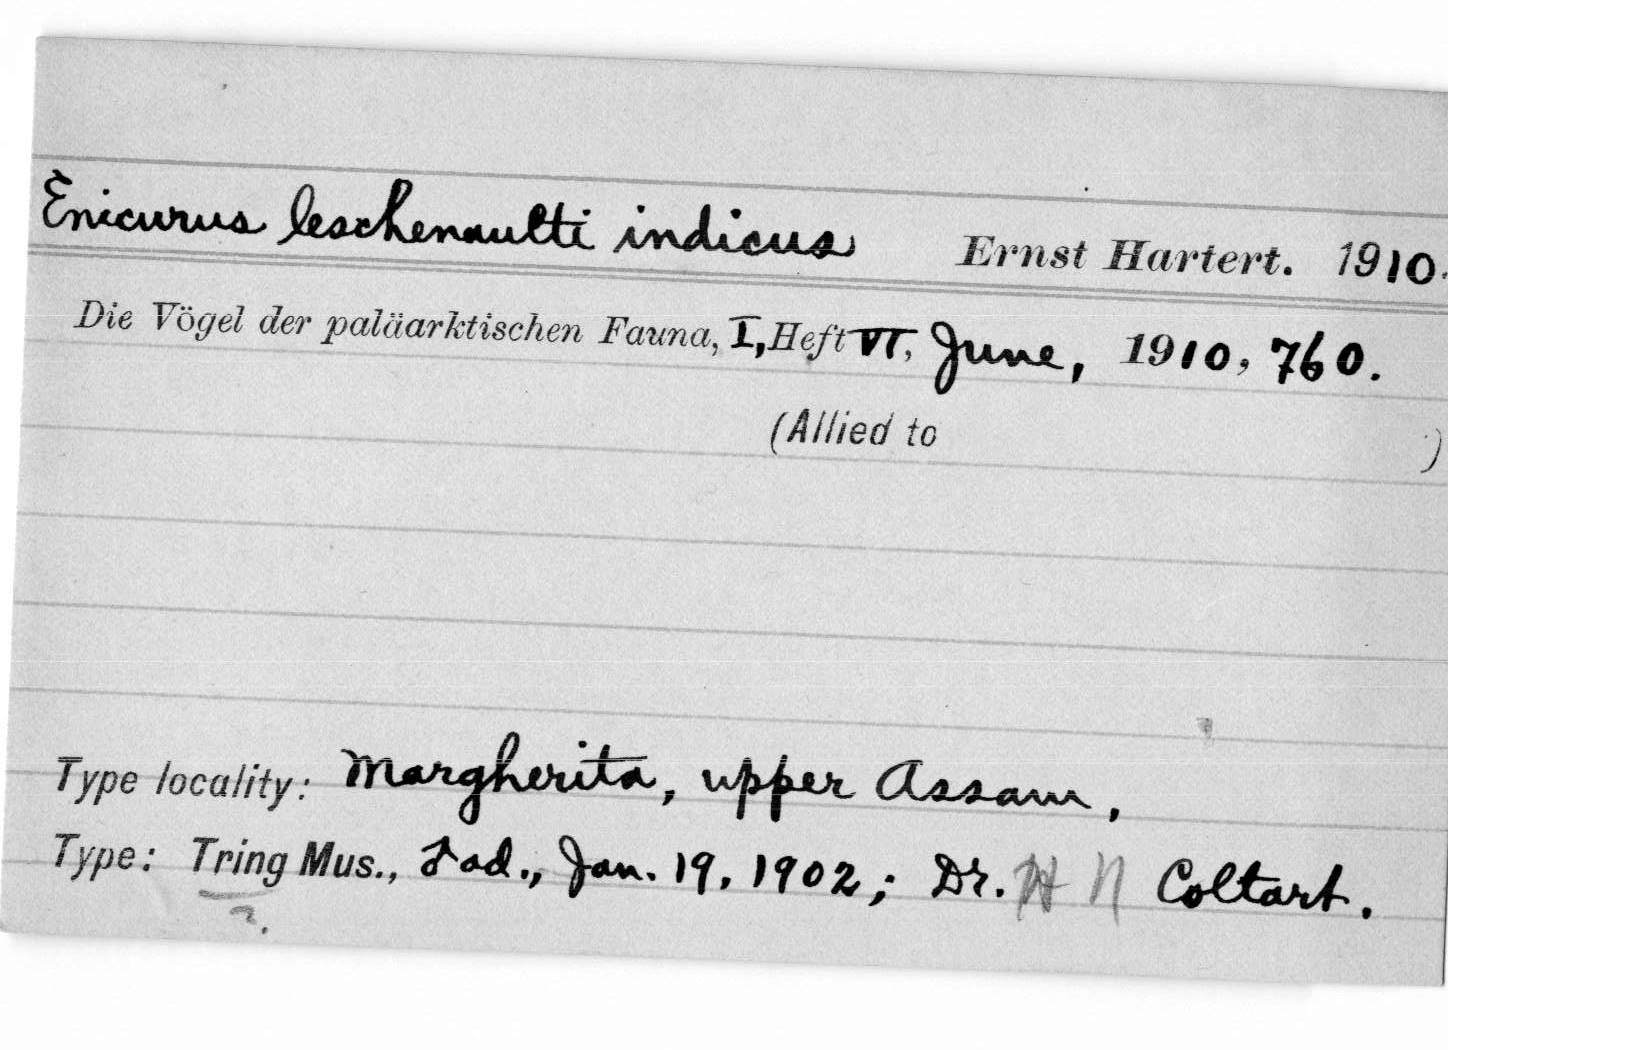 Enicurus leschenaulti indicus Ernst Hartert. 1910.
Die Vögel der paläarktischen Fauna, I, Heft VI, June, 1910, 760.
(Allied to )
Type locality: Margherita, upper Assam,
Type: Tring Mus., ♂ ad., Jan. 19, 1902; Dr. H N Coltart.
?